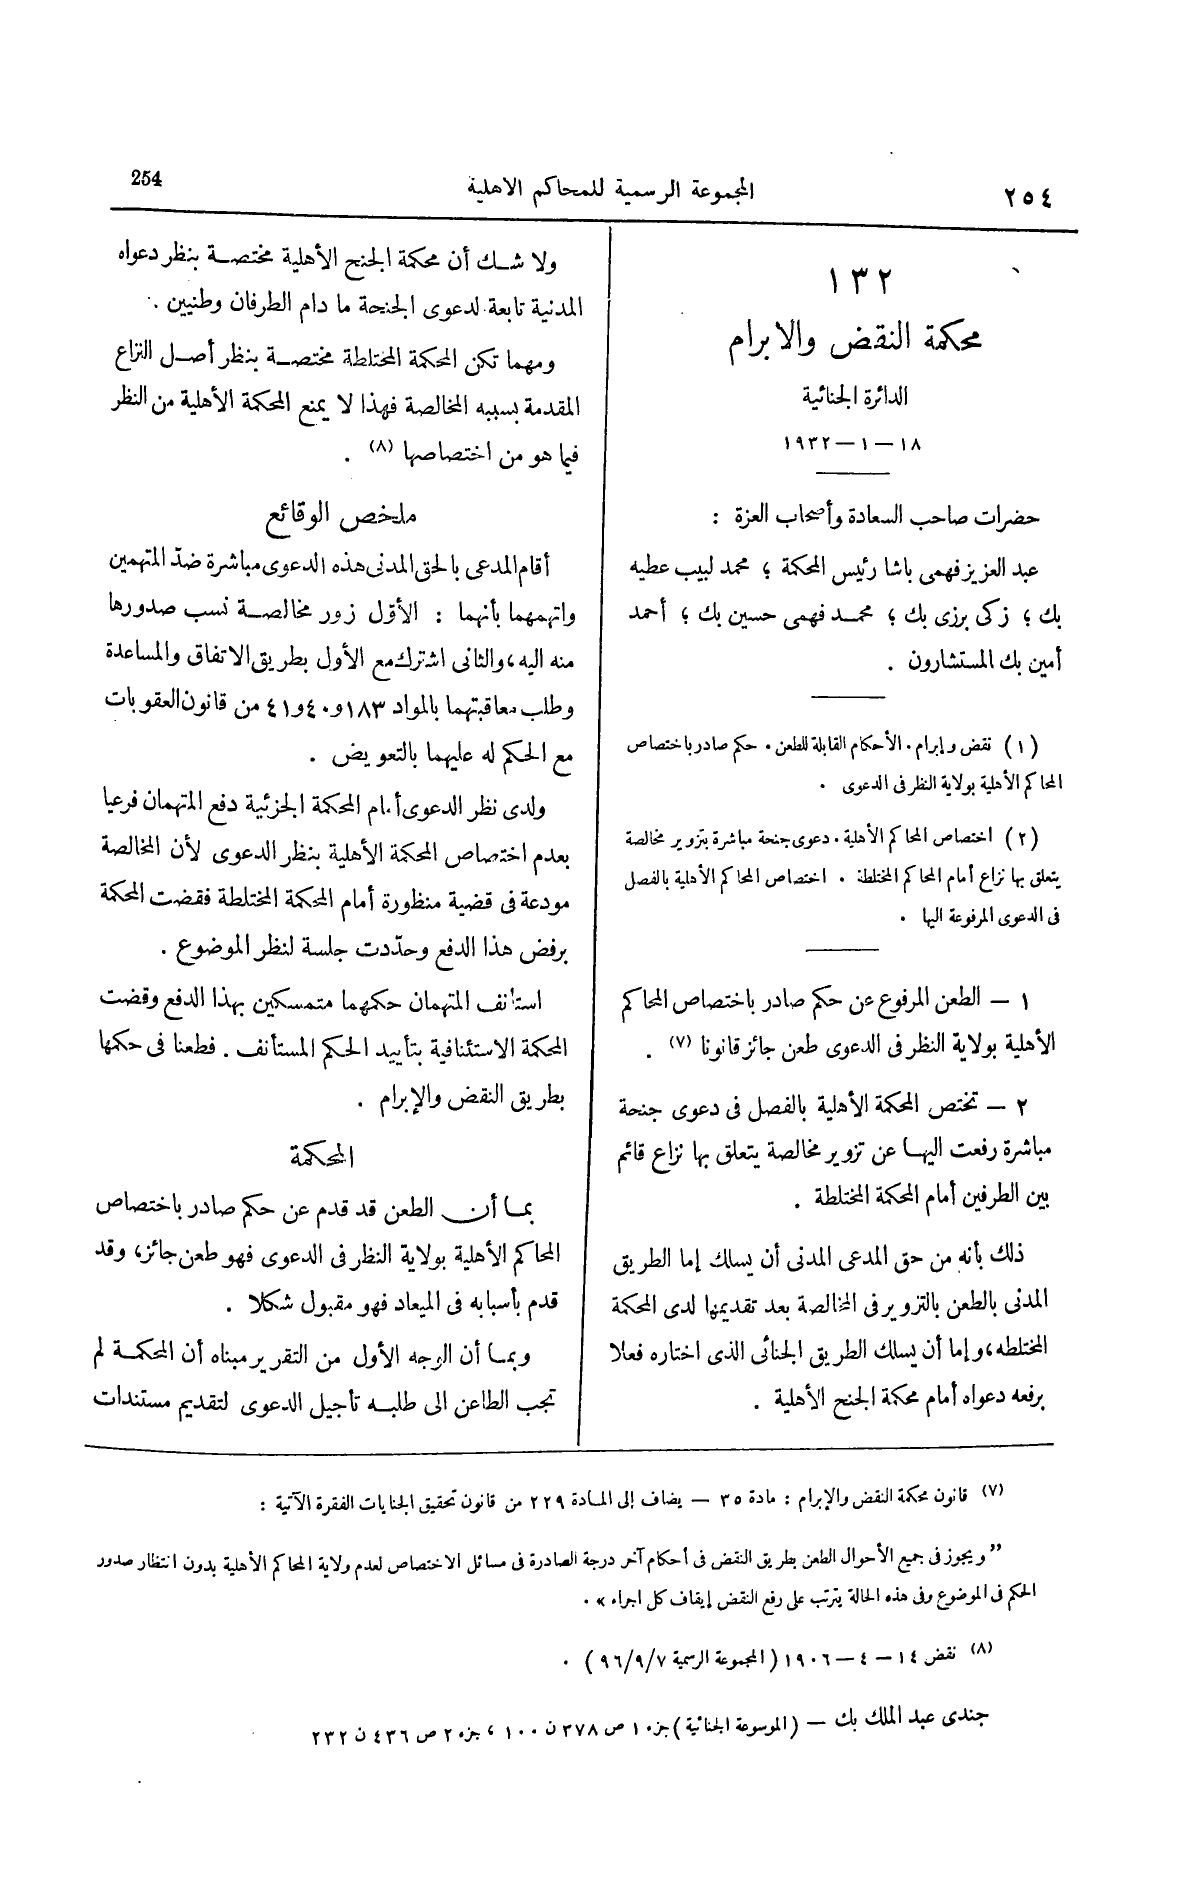 ٢٥٤
المجموعة الرسمية للمحاكم الاهلية
254
١٣٢
محكمة النقض والابرام
الدائرة الجنائية
١٨ — ١ — ١٩٣٢
حضرات صاحب السعادة وأصحاب العزة :
عبد العزيز فهمى باشا رئيس المحكمة ؛ محمد لبيب عطيه
بك ؛ زكى برزى بك ؛ محمد فهمى حسين بك ؛ أحمد
أمين بك المستشارون .
(١) نقض وإبرام . الأحكام القابلة للطعن . حكم صادر باختصاص
المحاكم الأهلية بولاية النظر فى الدعوى .
(٢) اختصاص المحاكم الأهلية . دعوى جنحة مباشرة بتزوير مخالصة
يتعلق بها نزاع أمام المحاكم المختلطة . اختصاص المحاكم الأهلية بالفصل
فى الدعوى المرفوعة اليها .
١ — الطعن المرفوع عن حكم صادر باختصاص المحاكم
الأهلية بولاية النظر فى الدعوى طعن جائز قانونا (٧) .
٢ — تختص المحكمة الأهلية بالفصل فى دعوى جنحة
مباشرة رفعت اليها عن تزوير مخالصة يتعلق بها نزاع قائم
بين الطرفين أمام المحكمة المختلطة .
ذلك بأنه من حق المدعى المدنى أن يسلك إما الطريق
المدنى بالطعن بالتزوير فى المخالصة بعد تقديمها لدى المحكمة
المختلطه، وإما أن يسلك الطريق الجنائى الذى اختاره فعلا
برفعه دعواه أمام محكمة الجنح الأهلية .
ولا شك أن محكمة الجنح الأهلية مختصة بنظر دعواه
المدنية تابعة لدعوى الجنحة ما دام الطرفان وطنيين .
ومهما تكن المحكمة المختلطة مختصة بنظر أصل النزاع
المقدمة بسببه المخالصة فهذا لا يمنع المحكمة الأهلية من النظر
فيما هو من اختصاصها (٨) .
ملخص الوقائع
أقام المدعى بالحق المدنى هذه الدعوى مباشرة ضدّ المتهمين
واتهمهما بأنهما : الأوّل زور مخالصة نسب صدورها
منه اليه، والثانى اشترك مع الأول بطريق الاتفاق والمساعدة
وطلب معاقبتهما بالمواد ١٨٣ و٤٠ و٤١ من قانون العقوبات
مع الحكم له عليهما بالتعويض .
ولدى نظر الدعوى أمام المحكمة الجزئية دفع المتهمان فرعيا
بعدم اختصاص المحكمة الأهلية بنظر الدعوى لأن المخالصة
مودعة فى قضية منظورة أمام المحكمة المختلطة فقضت المحكمة
برفض هذا الدفع وحدّدت جلسة لنظر الموضوع .
استأنف المتهمان حكمهما متمسكين بهذا الدفع وقضت
المحكمة الاستئنافية بتأييد الحكم المستأنف . فطعنا فى حكمها
بطريق النقض والإبرام .
المحكمة
بما أن الطعن قد قدم عن حكم صادر باختصاص
المحاكم الأهلية بولاية النظر فى الدعوى فهو طعن جائز، وقد
قدم بأسبابه فى الميعاد فهو مقبول شكلا .
وبما أن الوجه الأول من التقرير مبناه أن المحكمة لم
تجب الطاعن الى طلبه تأجيل الدعوى لتقديم مستندات
(٧) قانون محكمة النقض والإبرام : مادة ٣٥ — يضاف إلى المادة ٢٢٩ من قانون تحقيق الجنايات الفقرة الآتية :
” ويجوز فى جميع الأحوال الطعن بطريق النقض فى أحكام آخر درجة الصادرة فى مسائل الاختصاص لعدم ولاية المحاكم الأهلية بدون انتظار صدور
الحكم فى الموضوع وفى هذه الحالة يترتب على رفع النقض إيقاف كل اجراء » .
(٨) نقض ١٤ — ٤ — ١٩٠٦ (المجموعة الرسمية ٩٦/٩/٧) .
جندى عبد الملك بك — (الموسوعة الجنائية) جزء ١ ص ٣٧٨ ن ١٠٠ ، جزء ٢ ص ٤٣٦ ن ٢٣٢